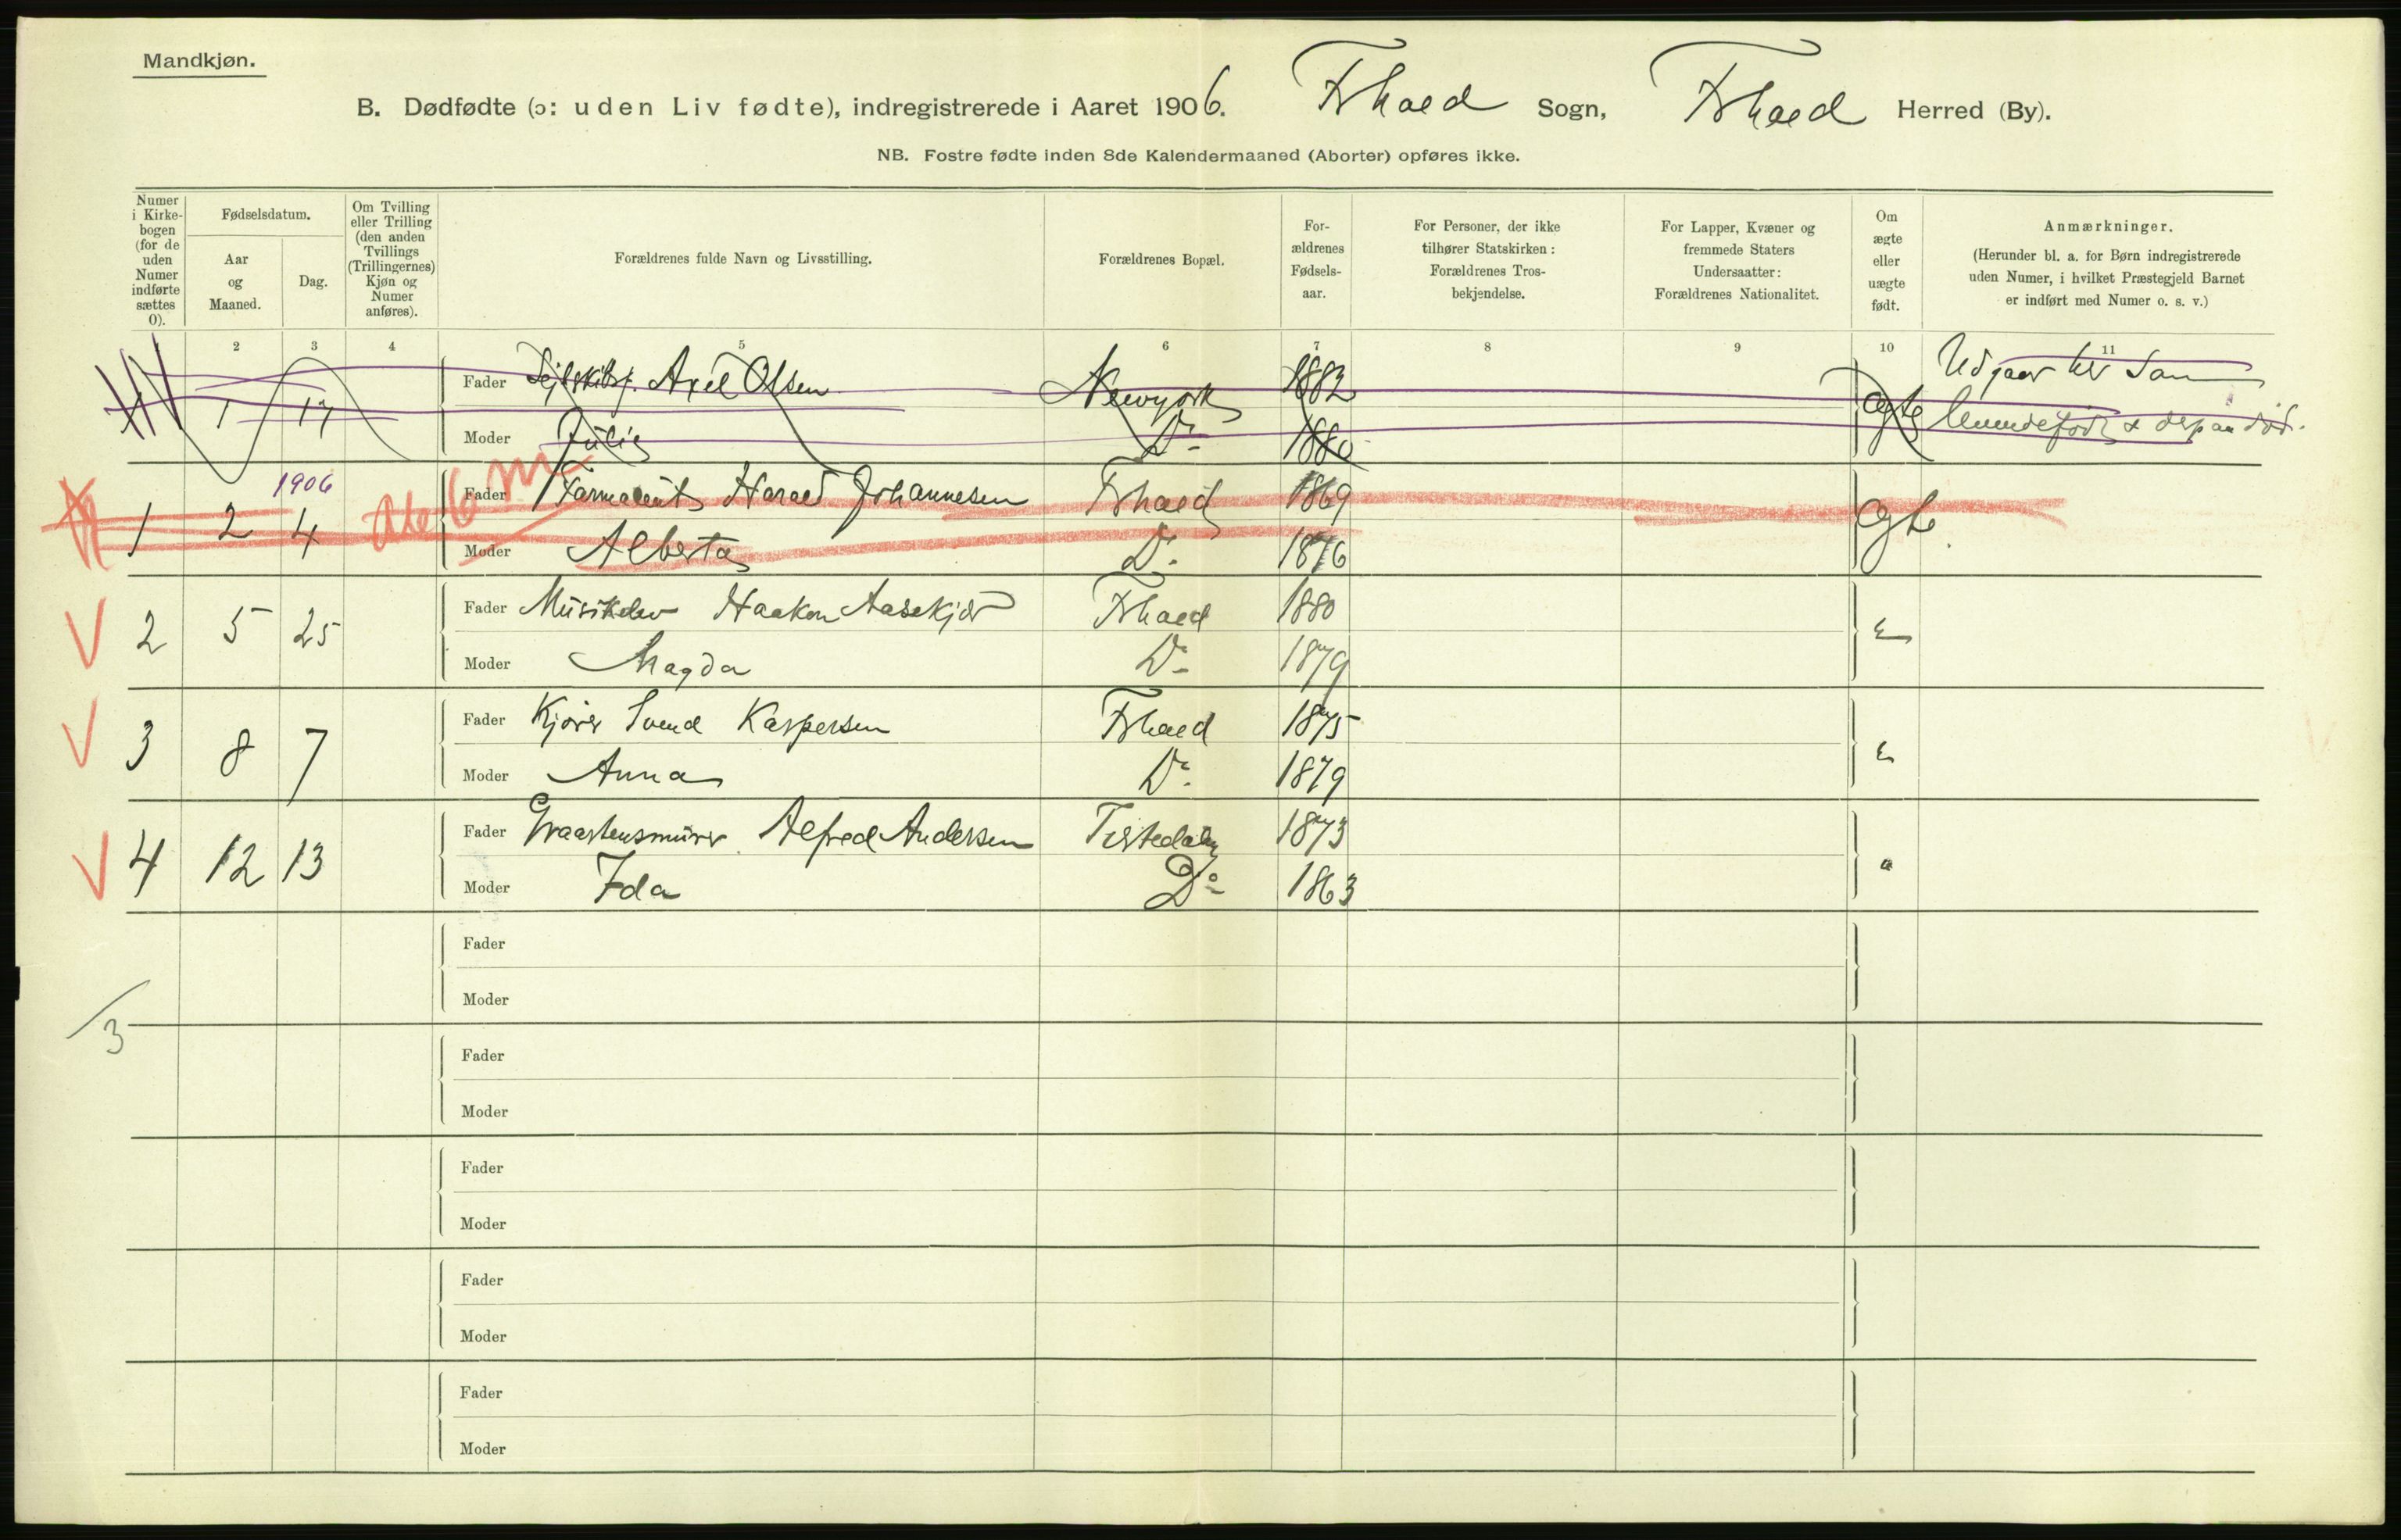 Mandkjøn.
B. Dødfødte (ɔ: uden Liv fødte), indregistrerede i Aaret 1906. Frhald Sogn, Frhald Herred (By).
NB. Fostre fødte inden 8de Kalendermaaned (Aborter) opføres ikke.
Numer i Kirkebogen (for de uden Numer indførte sættes 0).
Fødselsdatum.
Aar og Maaned.
Dag.
Om Tvilling eller Trilling (den anden Tvillings (Trillingernes) Kjøn og Numer anføres).
Forældrenes fulde Navn og Livsstilling.
Forældrenes Bopæl.
For-
ældrenes
Fødsels-
aar.
For Personer, der ikke
tilhører Statskirken:
Forældrenes Tros-
bekjendelse.
For Lapper, Kvæner og
fremmede Staters
Undersaatter:
Forældrenes Nationalitet.
Om
ægte
eller
uægte
født.
Anmærkninger.
(Herunder bl. a. for Børn indregistrerede
uden Numer, i hvilket Præstegjeld Barnet
er indført med Numer o. s. v.)
2 3 4 5 6 7 8 9 10 11
1 17 Fader Axel Olsen Newyork 1882 Ægte Udgaar
Moder Julie Do 1880
1906
1 2 4 Fader Harald Johannesen Frhald 1869 Ægte
Moder Alberta Do 1876
2 5 25 Fader Musikelev Haakon Aasekjær Frhald 1880
Moder Magda Do 1879
3 8 7 Fader Kjører Svend Kaspersen Frhald 1875
Moder Anna Do 1879
4 12 13 Fader Graastensmurer Alfred Andersen Tistedalen 1873
Moder Ida Do 1863
Fader
Moder
3
Fader
Moder
Fader
Moder
Fader
Moder
Fader
Moder